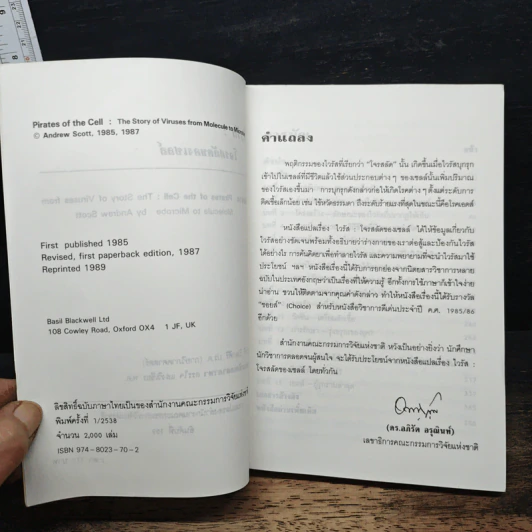 Pirates of the Cell : The Story of Viruses from Molecule to Microbe
© Andrew Scott, 1985, 1987
First published 1985
Revised, first paperback edition, 1987
Reprinted 1989
Basil Blackwell Ltd
108 Cowley Road, Oxford OX4 1 JF, UK
ลิขสิทธิ์ฉบับภาษาไทยเป็นของสำนักงานคณะกรรมการวิจัยแห่งชาติ
พิมพ์ครั้งที่ 1/2538
จำนวน 2,000 เล่ม
ISBN 974-8023-70-2
คำแถลง
พฤติกรรมของไวรัสที่เรียกว่า "โจรสลัด" นั้น เกิดขึ้นเมื่อไวรัสบุกรุก
เข้าไปในเซลล์ที่มีชีวิตแล้วใช้ส่วนประกอบต่าง ๆ ของเซลล์นั้นเพิ่มปริมาณ
ของไวรัสเองขึ้นมา การบุกรุกดังกล่าวก่อให้เกิดโรคต่าง ๆ ตั้งแต่ระดับการ
ติดเชื้อเล็กน้อย เช่น ไข้หวัดธรรมดา ถึงระดับร้ายแรงที่สุดในขณะนี้คือโรคเอดส์
หนังสือแปลเรื่อง ไวรัส : โจรสลัดของเซลล์ ได้ให้ข้อมูลเกี่ยวกับ
ไวรัสอย่างชัดเจนพร้อมทั้งอธิบายว่าร่างกายของเราต่อสู้และป้องกันไวรัส
ได้อย่างไร การค้นคิดยาเพื่อทำลายไวรัส และความพยายามที่จะนำไวรัสมาใช้
ประโยชน์ ฯลฯ หนังสือเรื่องนี้ได้รับการยกย่องจากนิตยสารวิชาการหลาย
ฉบับในประเทศอังกฤษว่าเป็นเรื่องที่ให้ความรู้ อีกทั้งการใช้ภาษาก็เข้าใจง่าย
น่าอ่าน ชวนให้ติดตามจากคุณค่าดังกล่าว ทำให้หนังสือเรื่องนี้ได้รับรางวัล
"ชอยส์" (Choice) สำหรับหนังสือวิชาการดีเด่นประจำปี ค.ศ. 1985/86
อีกด้วย
สำนักงานคณะกรรมการวิจัยแห่งชาติ หวังเป็นอย่างยิ่งว่า นักศึกษา
นักวิชาการตลอดจนผู้สนใจ จะได้รับประโยชน์จากหนังสือแปลเรื่อง ไวรัส :
โจรสลัดของเซลล์ โดยทั่วกัน
(ดร.อภิรัต อรุณินท์)
เลขาธิการคณะกรรมการวิจัยแห่งชาติ